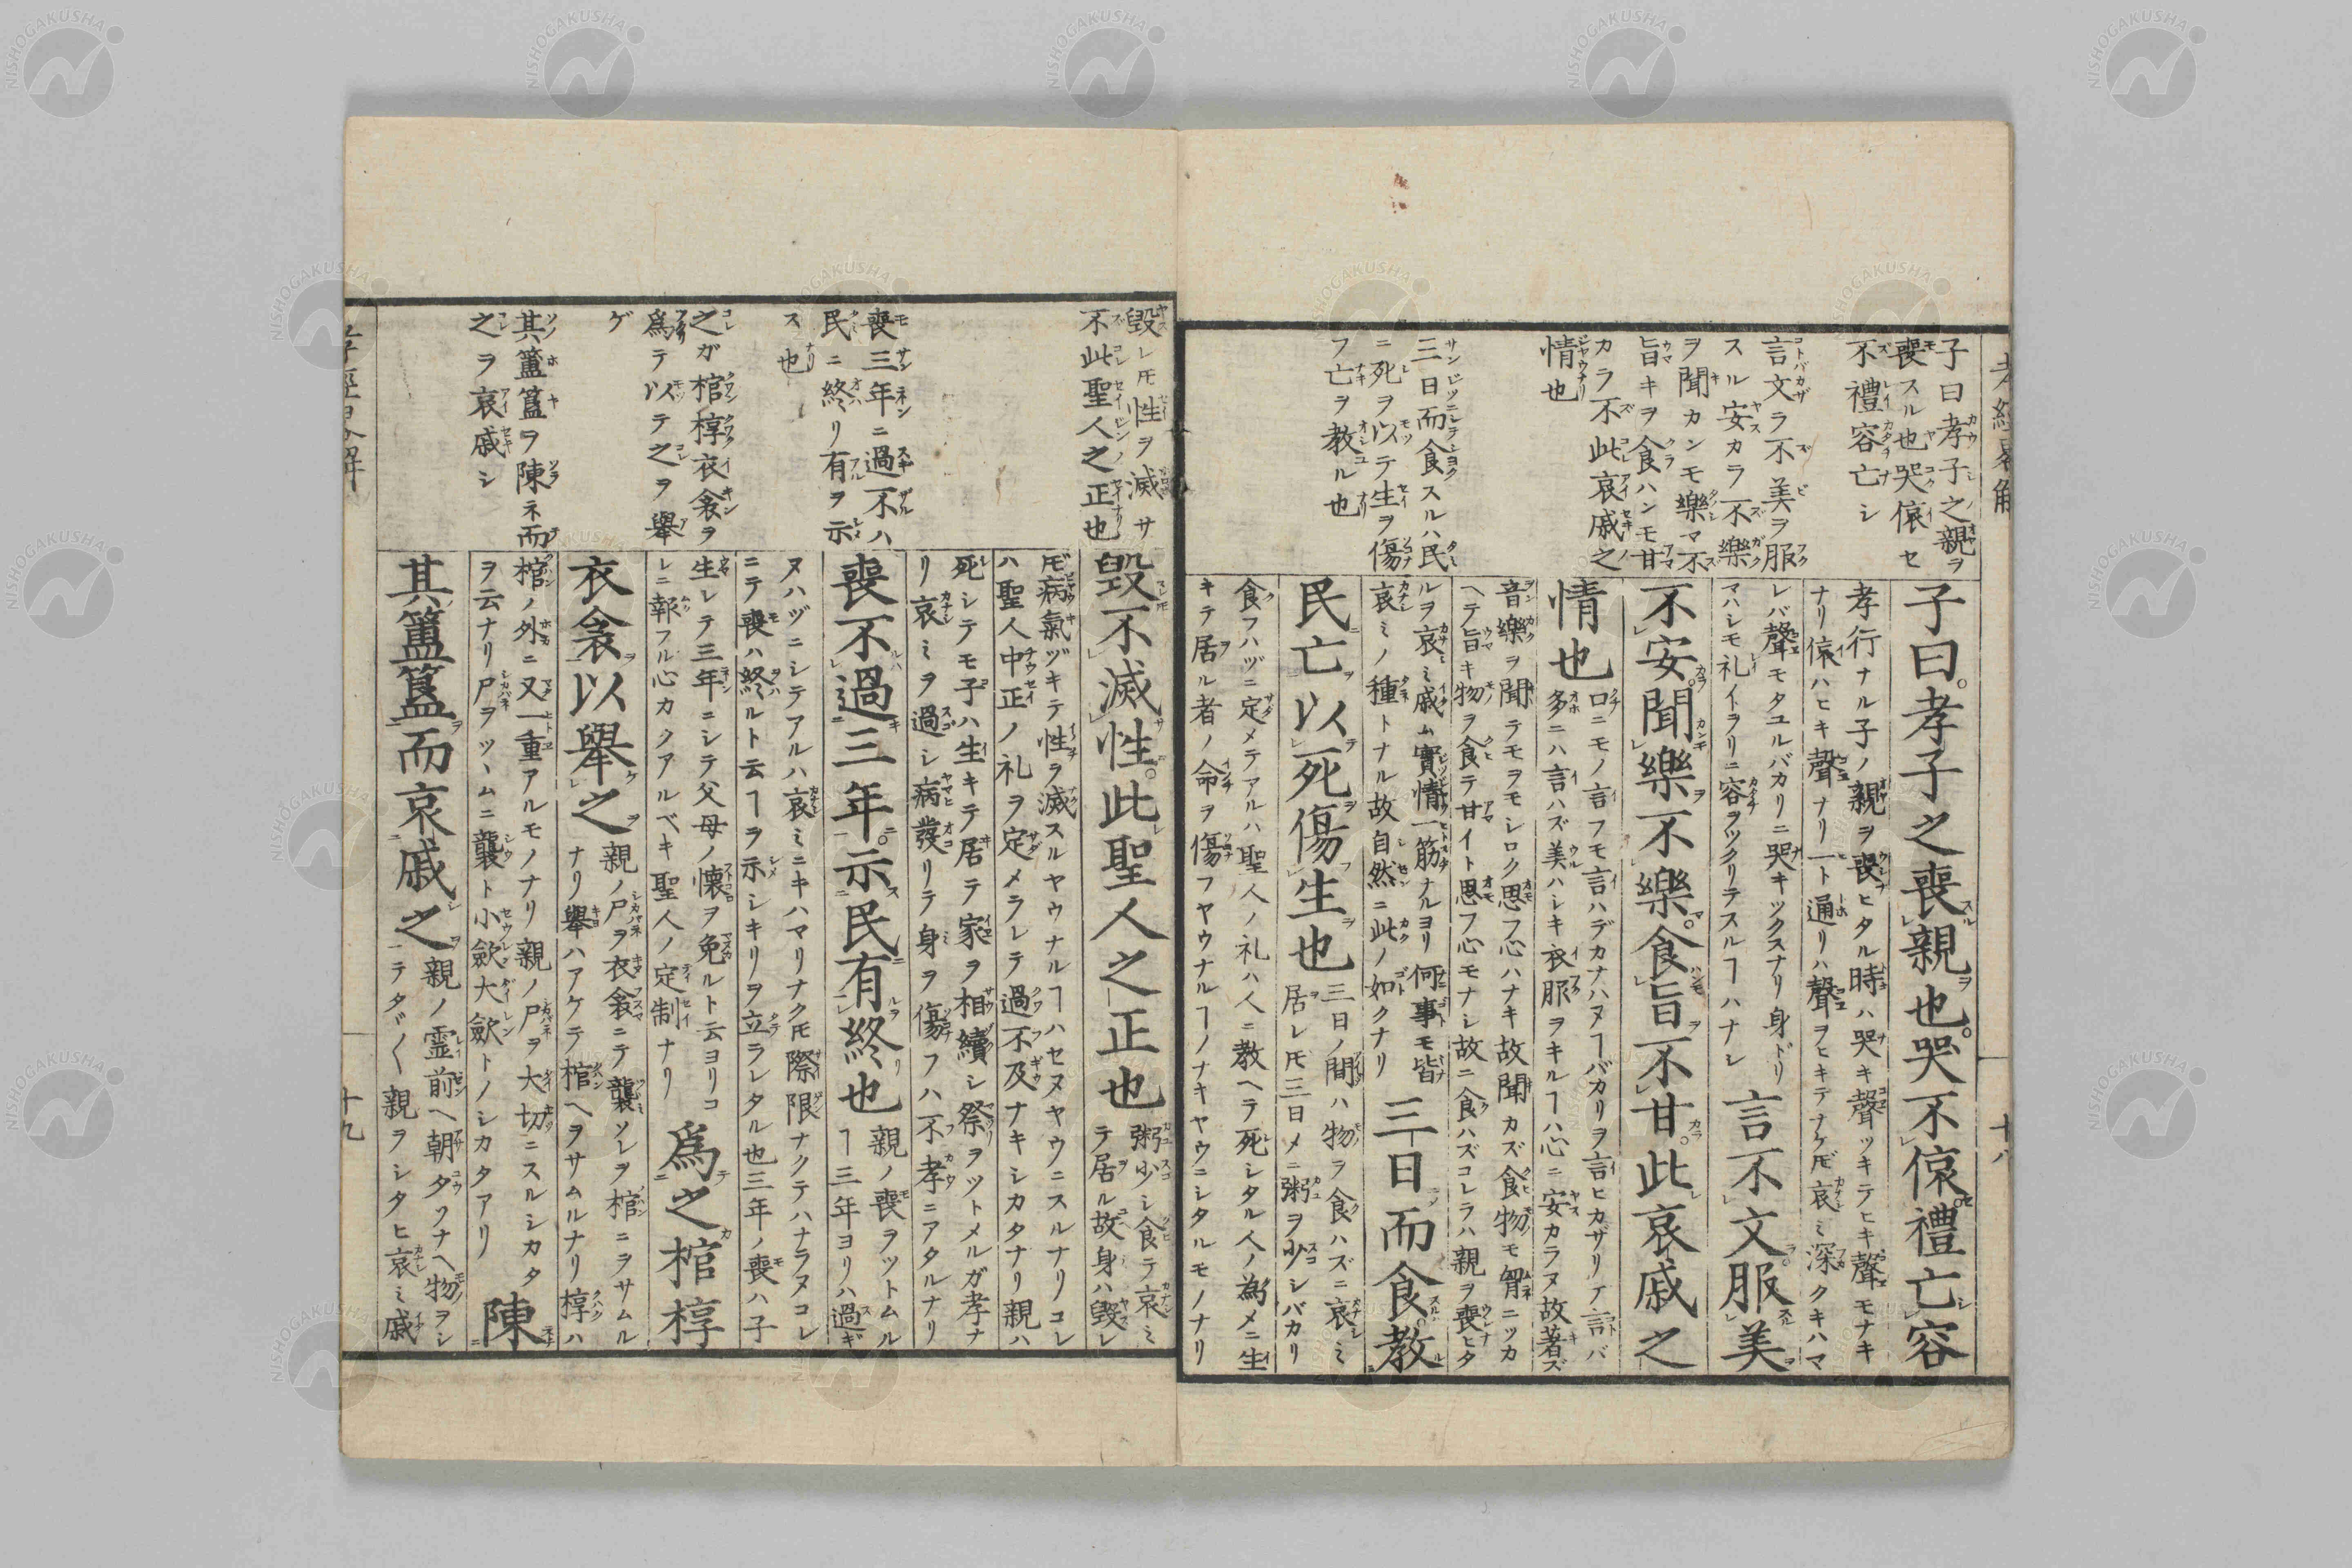 子曰孝子之親ヲ
喪スル也哭偯セ
不禮容亡シ
言文ラ不美ヲ服
スル安カラ不樂
ヲ聞カンモ樂マ不
旨キヲ食ハンモ甘
カラ不此哀戚之
情也
三日而食スルハ民
ニ死ヲ以テ生ヲ傷
フ亡ヲ教ユル也
子曰。孝子之喪親也。哭不偯。禮亡容
孝行ナル子ノ親ヲ喪ヒタル時ハ哭キ聲ツキテヒキ聲モナキ
ナリ偯ハヒキ聲ナリ一ト通リハ聲ヲヒキテナケ𪜈哀ミ深クキハマ
レバ聲モタユルバカリニ哭キツクスナリ身ドリ
マハシモ礼イトヲリニ容ヲツクリテスルヿハナシ
言不文。服美
不安。聞樂不樂。食旨不甘。此哀戚之
情也
口ニモノ言フモ言ハデカナハヌヿバカリヲ言ヒカザリテ言バ
多ニハ言ハズ美ハシキ衣服ヲキルヿハ心ニ安カラヌ故著ズ
音樂ヲ聞テモヲモシロク思フ心ハナキ故聞カズ食物モ胷ニツカ
ヘテ旨キ物ヲ食テ甘イト思フ心モナシ故ニ食ハズコレラハ親ヲ喪ヒタ
ルヲ哀ミ戚ム實情一筋ナルヨリ何事モ皆
哀ミノ種トナル故自然ニ此ノ如クナリ
三日而食。教
民亡以死傷生也
三日ノ間ハ物ヲ食ハズニ哀ミ
居レ𪜈三日メニ粥ヲ少シバカリ
食フハヅニ定メテアルハ聖人ノ礼ハ人ニ教ヘテ死シタル人ノ為メニ生
キテ居ル者ノ命ヲ傷フヤウナルヿノナキヤウニシタルモノナリ
十八
毀レ𪜈性ヲ滅サ
不此聖人之正也
喪三年ニ過不ハ
民ニ終リ有ヲ示
ス也
之ガ棺椁衣衾ヲ
爲テ以テ之ヲ舉
ゲ
其簠簋ヲ陳ネ而
之ヲ哀戚シ
毀不滅性。此聖人之正也
粥少シ食テ哀ミ
テ居ル故身ハ毀レ
𪜈病氣ヅキテ性ヲ滅スルヤウナルヿハセヌヤウニスルナリコレ
ハ聖人中正ノ礼ヲ定メラレテ過不及ナキシカタナリ親ハ
死シテモ子ハ生キテ居テ家ヲ相續シ祭ヲツトメルガ孝ナ
リ哀ミヲ過シ病發リテ身ヲ傷フハ不孝ニアタルナリ
喪不過三年。示民有終也
親ノ喪ヲツトムル
ヿ三年ヨリハ過ギ
ヌハヅニシテアルハ哀ミニキハマリナク𪜈際限ナクテハナラヌコレ
ニテ喪ハ終ルト云ヿヲ示シキリヲ立ラレタル也三年ノ喪ハ子
生レテ三年ニシテ父母ノ懷ヲ免ルト云ヨリコ
レニ報フル心カクアルベキ聖人ノ定制ナリ
爲之棺椁
衣衾以舉之
親ノ尸ヲ衣衾ニテ襲ソレヲ棺ニヲサムル
ナリ舉ハアケテ棺ヘヲサムルナリ椁ハ
棺ノ外ニ又一重アルモノナリ親ノ尸ヲ大切ニスルシカタ
ヲ云ナリ尸ヲツヽムニ襲ト小歛大歛トノシカタアリ
陳
其簠簋而哀戚之
親ノ霊前ヘ朝夕ソナヘ物ヲシ
テタヾ〱親ヲシタヒ哀ミ戚
十九